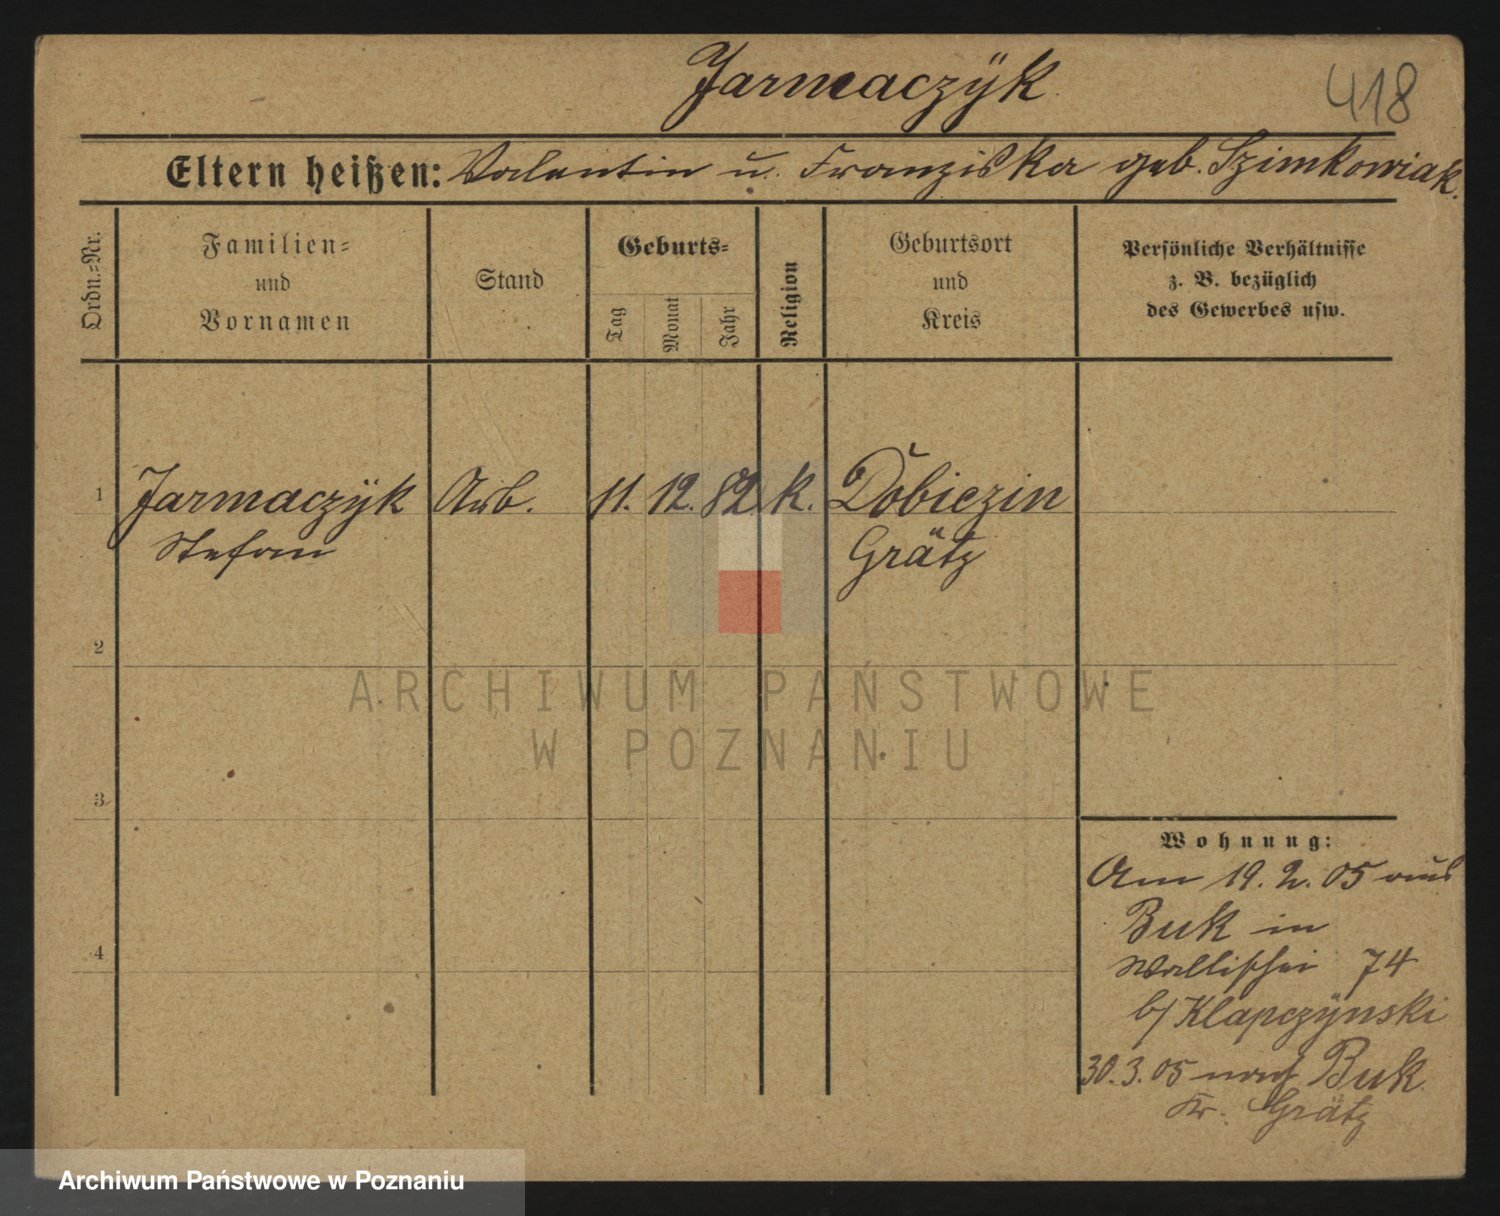 Jarmaczÿk
418
Eltern heißen: Valentin u. Franziska geb. Szimkowiak.
Ordn.=Nr.
Familien=
und
Vornamen
Stand
Geburts=
Tag
Monat
Jahr
Religion
Geburtsort
und
Kreis
Persönliche Verhältnisse
z. B. bezüglich
des Gewerbes usw.
1 Jarmaczÿk Arb. 11. 12. 82 k. Dobiezin
Stefan Grätz
2
ARCHIWUM PAŃSTWOWE
W POZNANIU
3
Wohnung:
Am 19. 2. 05 aus
Buk in
Wallischei 74
b/ Klapczÿnski
4
30. 3. 05 nach Buk
Kr. Grätz
Archiwum Państwowe w Poznaniu